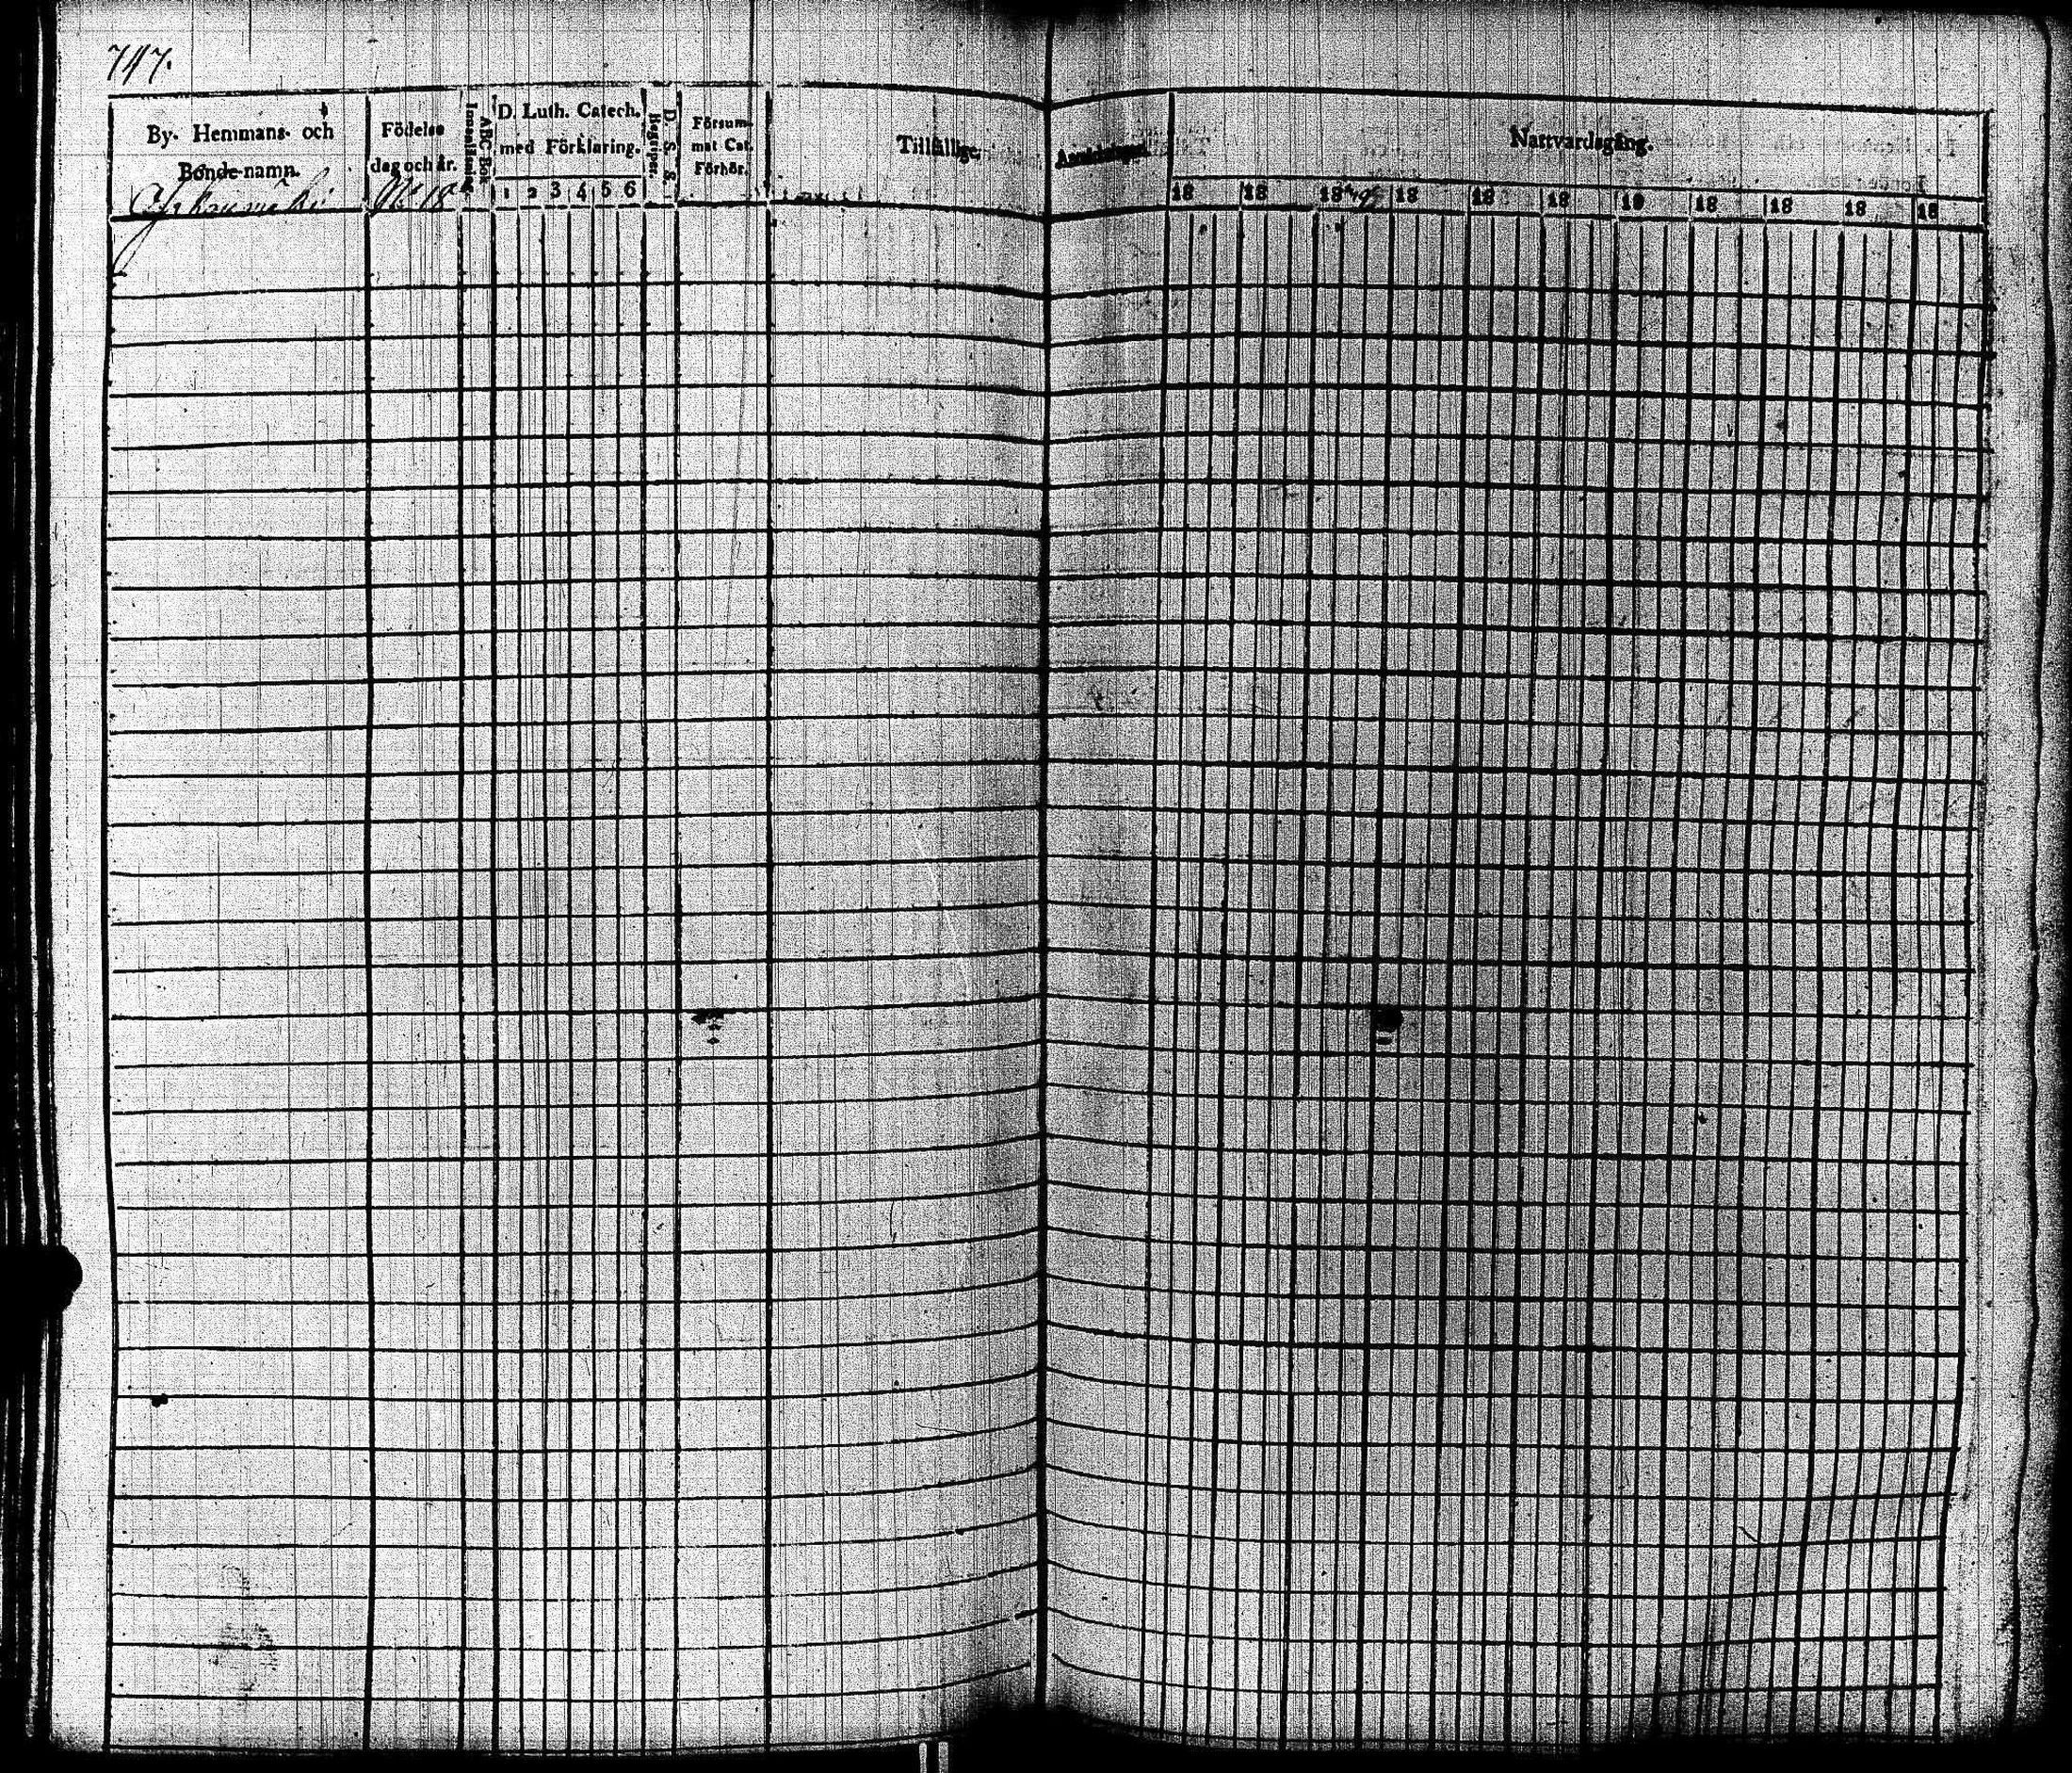 747.
By- Hemmans- och
Bonde-namn.
Födelse
dag och år.
Innanläsning.
ABC Bok
D. Luth. Catech.
med Förklaring.
1 2 3 4 5 6
Begriper.
D. S. S.
Försum-
mat Cat.
Förhör.
Tillfällige
Anmärkningar.
Nattvardsgång.
18 18 18 18 18 18 18 18 18 18 18
No 18